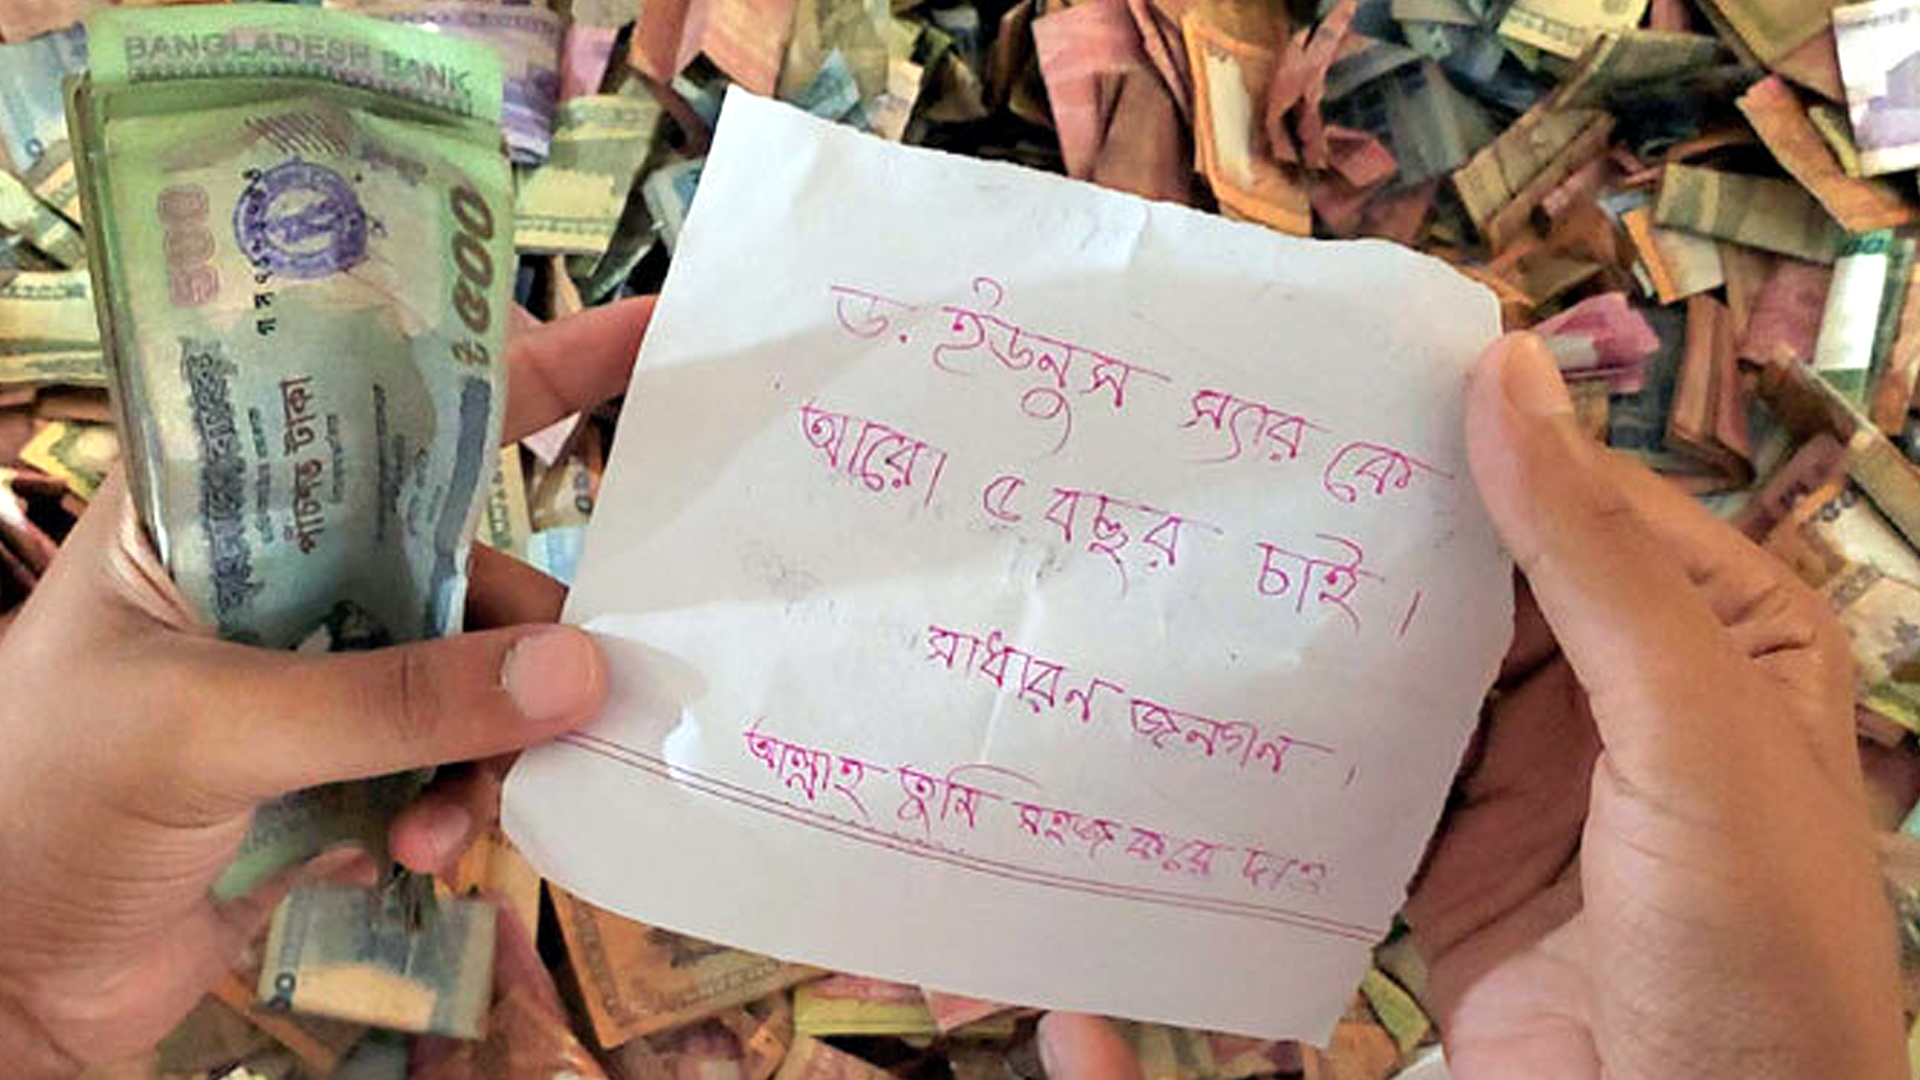 BANGLADESH BANK
৳৫০০
পাঁচশত টাকা
ড. ইউনুস স্যার কে
আরো ৫ বছর চাই।
সাধারন জনগন।
আল্লাহ তুমি সহজ করে দাও